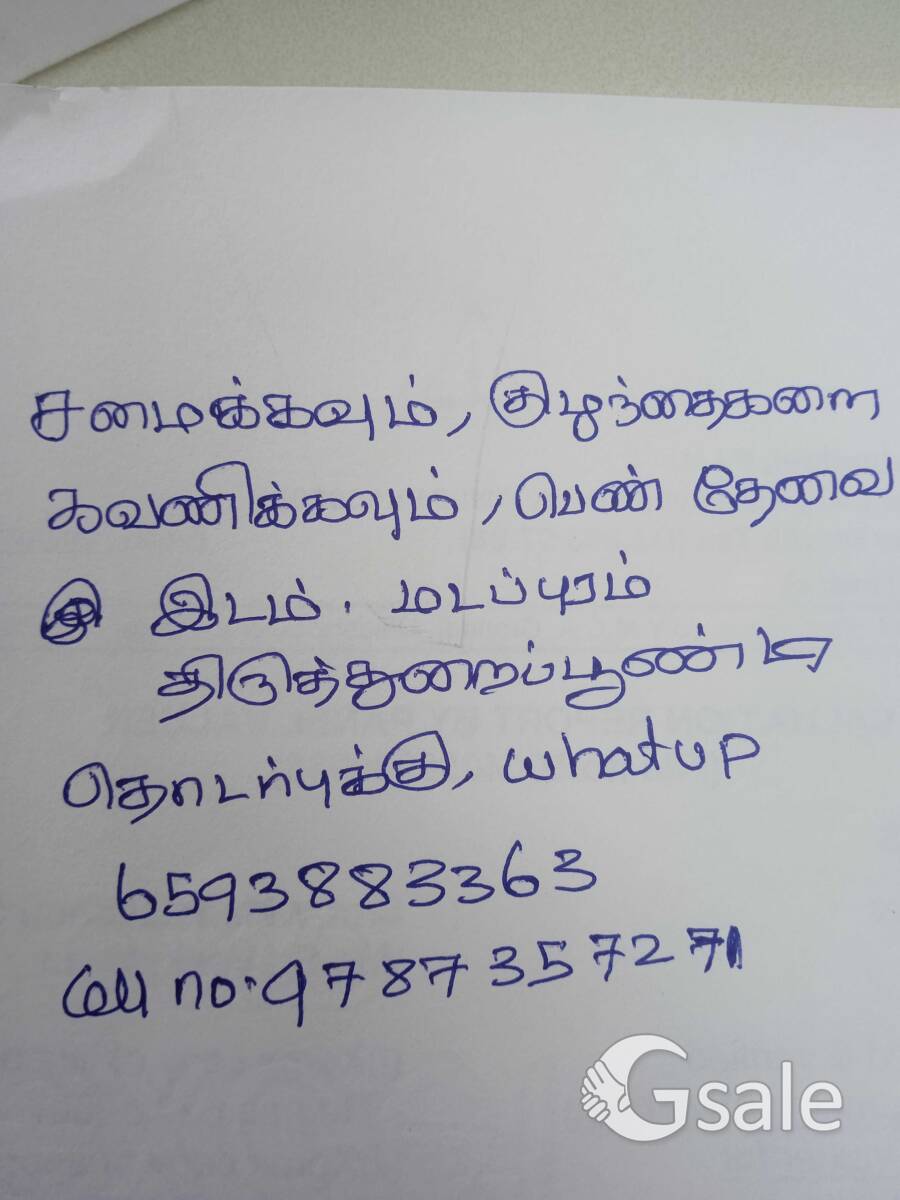 சமைக்கவும், குழந்தைகளை
கவணிக்கவும், பெண் தேவை
இடம். மடப்புரம்
திருத்துறைப்பூண்டி
தொடர்புக்கு, whatup
6593883363
Cell no. 9787357271
Gsale